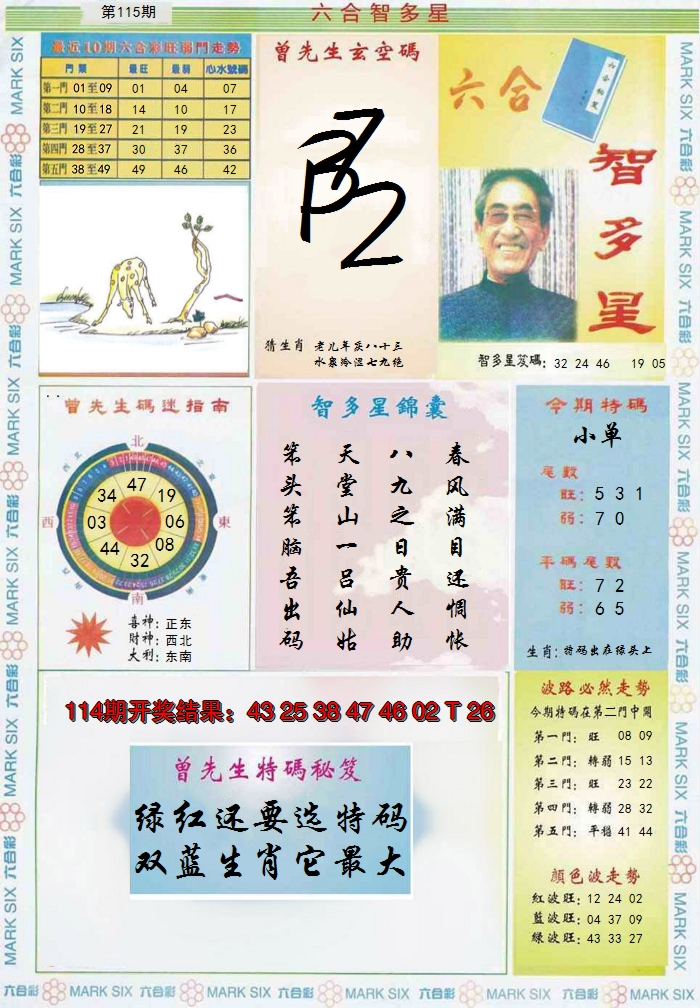 第115期
六合智多星
最近10期六合彩旺弱門走勢
門類 最旺 最弱 心水號碼
第一門 01至09 01 04 07
第二門 10至18 14 10 17
第三門 19至27 21 19 23
第四門 28至37 30 37 36
第五門 38至49 49 46 42
曾先生玄空碼
猜生肖 老儿年庆八十三
水泉冷温七九绝
六合
智多星
智多星笈碼: 32 24 46 19 05
曾先生碼迷指南
北
西
東
南
47
19
06
08
32
44
03
34
喜神: 正东
財神: 西北
大利: 东南
智多星錦囊
春风满目还惆怅
八九之日贵人助
天堂山一吕仙姑
笨头笨脑吾出码
今期特碼
小单
尾數
旺: 5 3 1
弱: 7 0
平碼尾數
旺: 7 2
弱: 6 5
生肖: 特码出在绿头上
114期开奖结果: 43 25 38 47 46 02 T 26
曾先生特碼秘笈
绿红还要选特码
双蓝生肖它最大
波路必然走勢
今期特碼在第二門中開
第一門: 旺 08 09
第二門: 轉弱 15 13
第三門: 旺 23 22
第四門: 轉弱 28 32
第五門: 平穩 41 44
顏色波走勢
紅波旺: 12 24 02
藍波旺: 04 37 09
綠波旺: 43 33 27
MARK SIX 六合彩